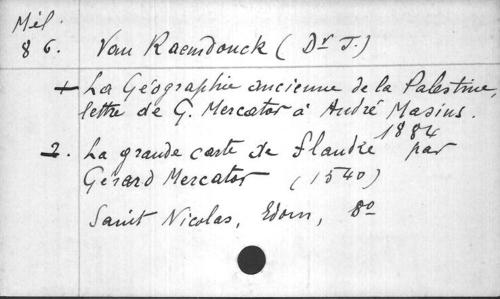 Mél.
86. Van Raemdonck (Dr J.)
+ La Géographie ancienne de la Palestine,
lettre de G. Mercator à André Masius.
1884
2. La grande carte de Flandre par
Gérard Mercator (1540)
Saint Nicolas, Edom, 8o